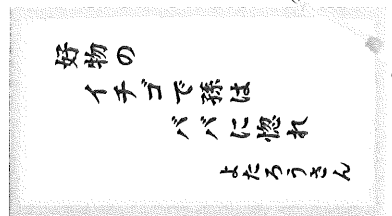 好物の
イチゴで孫は
ババに惚れ
よたろうさん